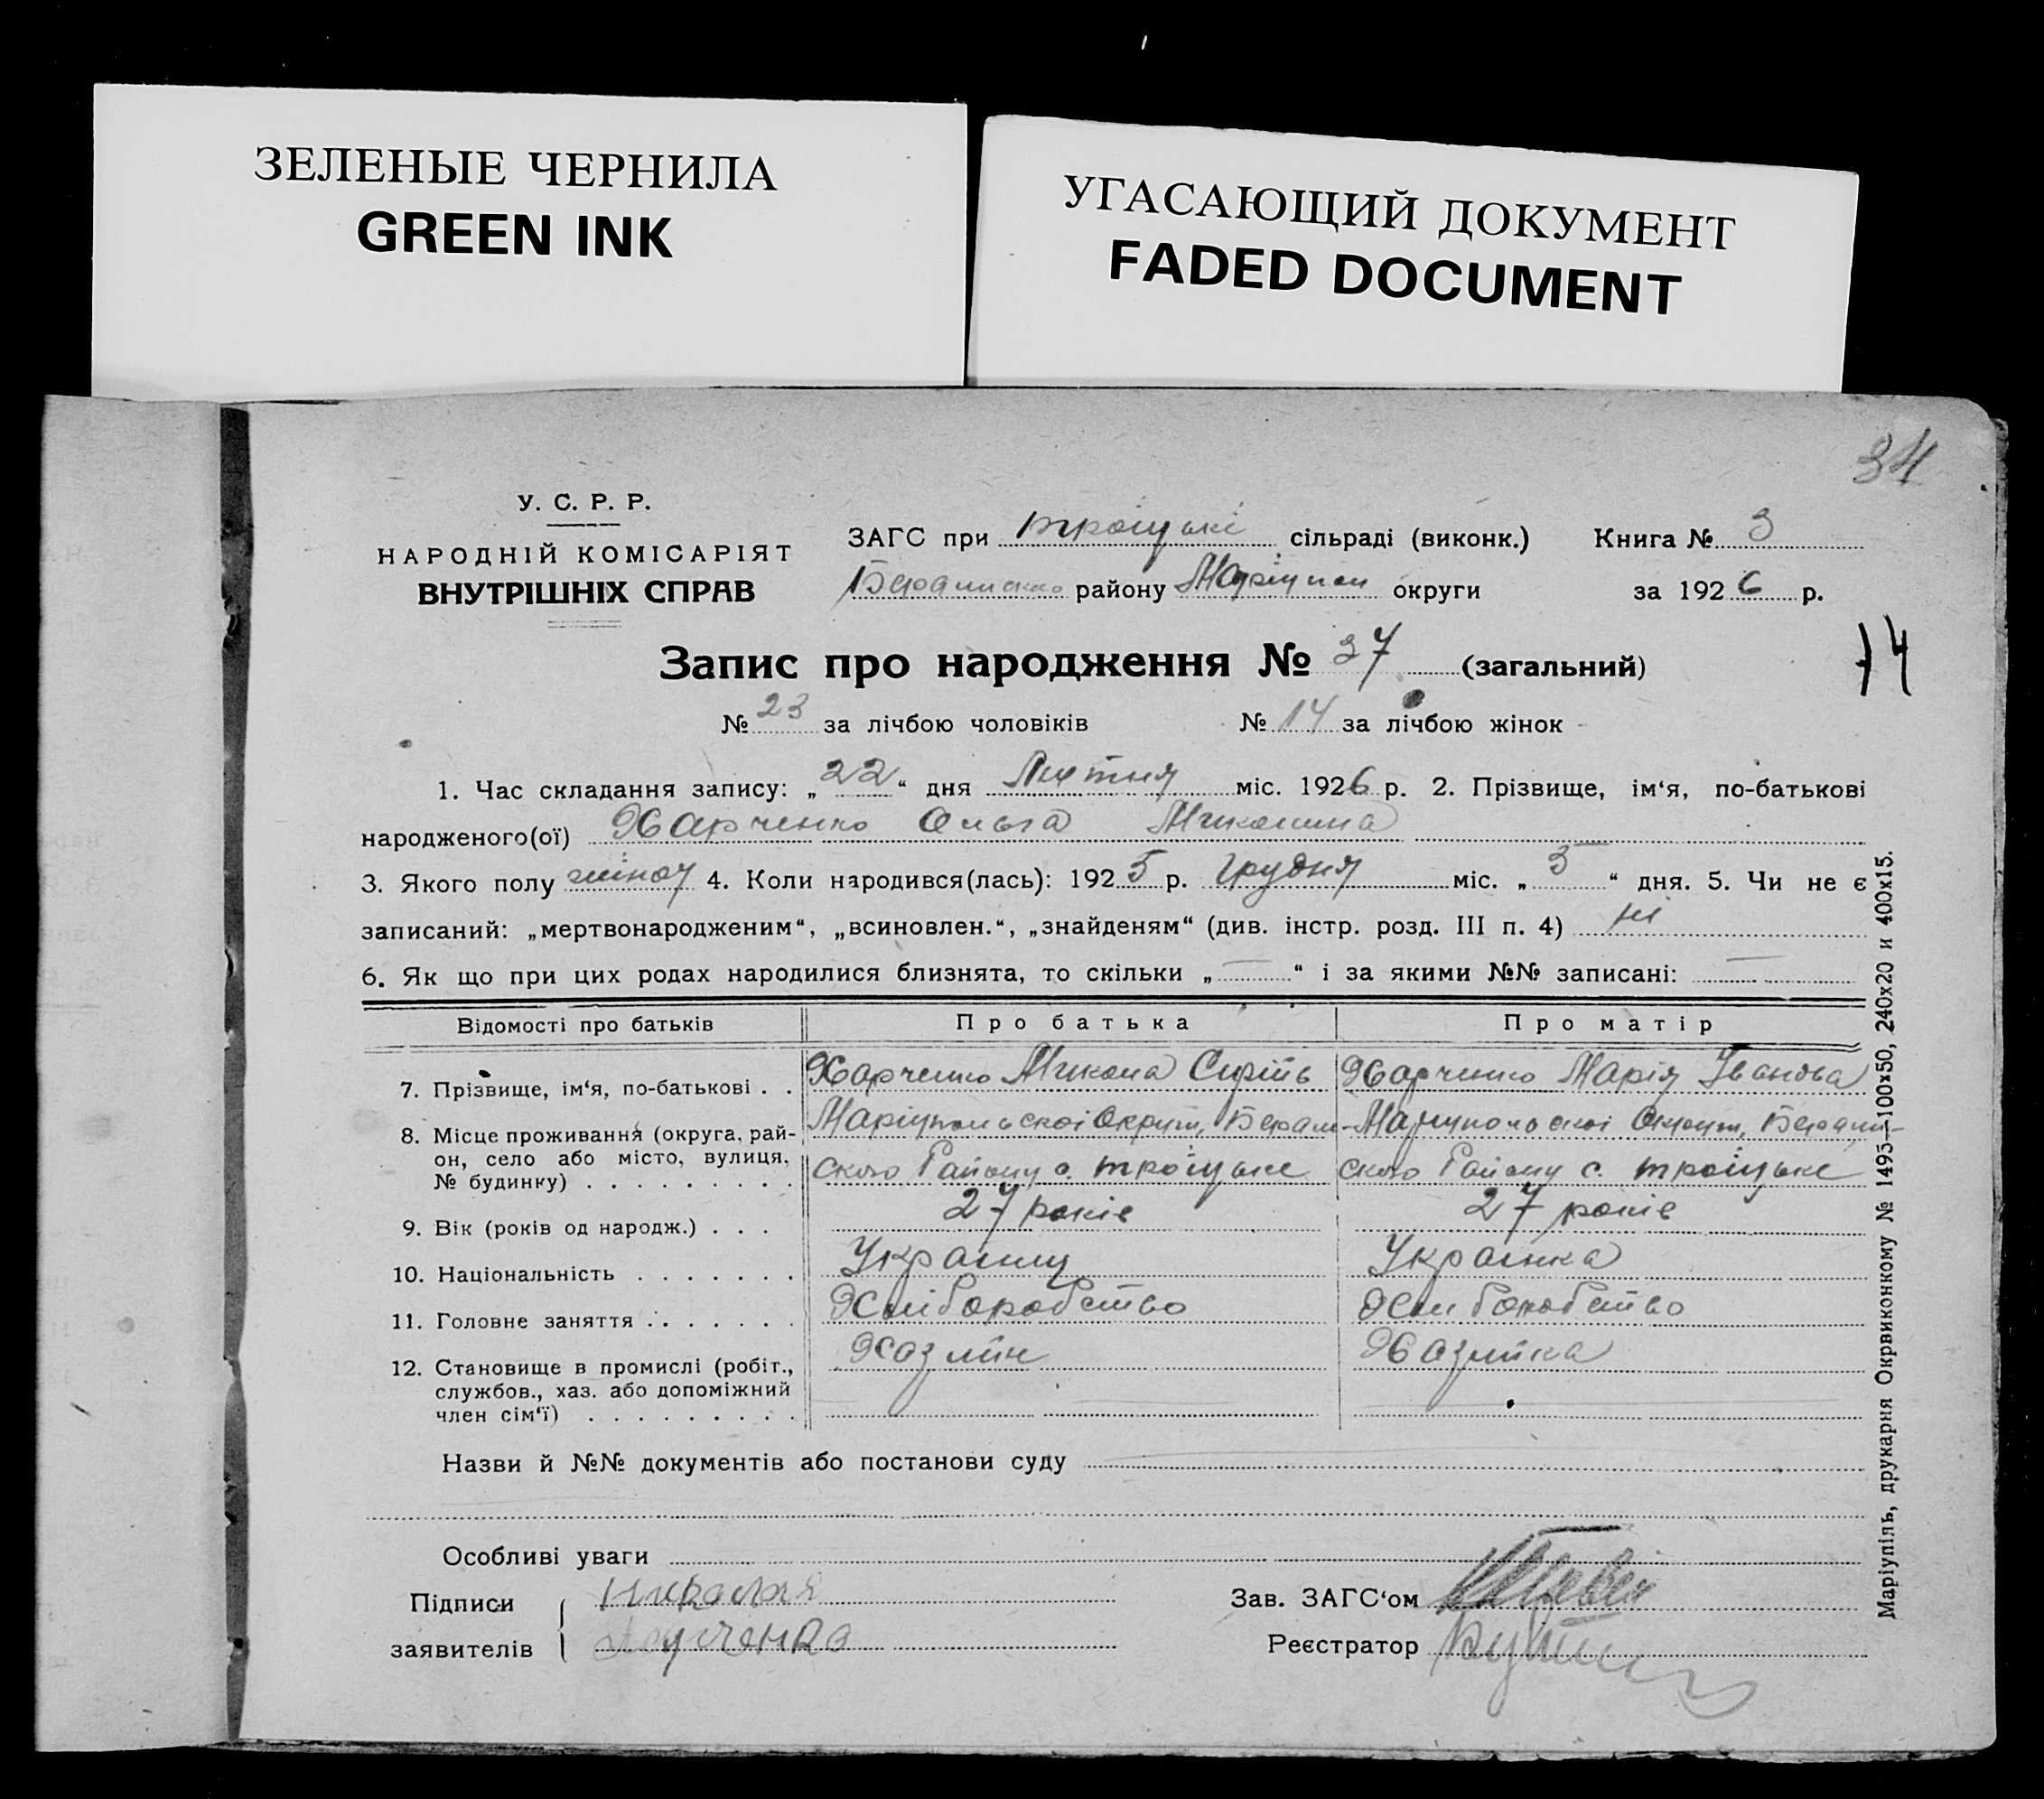 ЗЕЛЕНЫЕ ЧЕРНИЛА
GREEN INK
УГАСАЮЩИЙ ДОКУМЕНТ
FADED DOCUMENT
34
У. С. Р. Р.
НАРОДНІЙ КОМІСАРІЯТ
ВНУТРІШНІХ СПРАВ
ЗАГС при троіцькі сільраді (виконк.) Книга № 3
району Маріупол округи за 1926 р.
Запис про народження № 37 (загальний)
74
№ 23 за лічбою чоловіків № 14 за лічбою жінок
1. Час складання запису: „22“ дня Лютня міс. 1926 р. 2. Прізвище, ім‘я, по-батькові
народженого(ої) Харченко Ольга Миколина
3. Якого полу жіноч 4. Коли народився(лась): 1925 р. грудня міс. „5“ дня. 5. Чи не є
записаний: „мертвонародженим“, „всиновлен.“, „знайденям“ (див. інстр. розд. III п. 4) ні
6. Як що при цих родах народилися близнята, то скільки „—“ і за якими №№ записані: —
Відомості про батьків Про батька Про матір
7. Прізвище, ім‘я, по-батькові . . Харченко Микола Харченко Марія Іванова
8. Місце проживання (округа, рай-
он, село або місто, вулиця,
№ будинку) . . . . . . . . .
Маріупольскоі Округи, Маріупольскоі Округи,
ского Району с. троіцьке ского Району с. троіцьке
9. Вік (років од народж.) . . . 27 років 27 років
10. Національність . . . . . . . Украінц Украінка
11. Головне заняття . . . . . . . Хліборобство Хліборобство
12. Становище в промислі (робіт.,
службов., хаз. або допоміжний
член сім‘ї) . . . . . . . . .
Хазяін Хазяйка
Назви й №№ документів або постанови суду
Особливі уваги
Підписи
заявителів
Зав. ЗАГС‘ом
Реєстратор
Маріупіль, друкарня Окрвиконкому № 1493—100x50, 240x20 и 400x15.